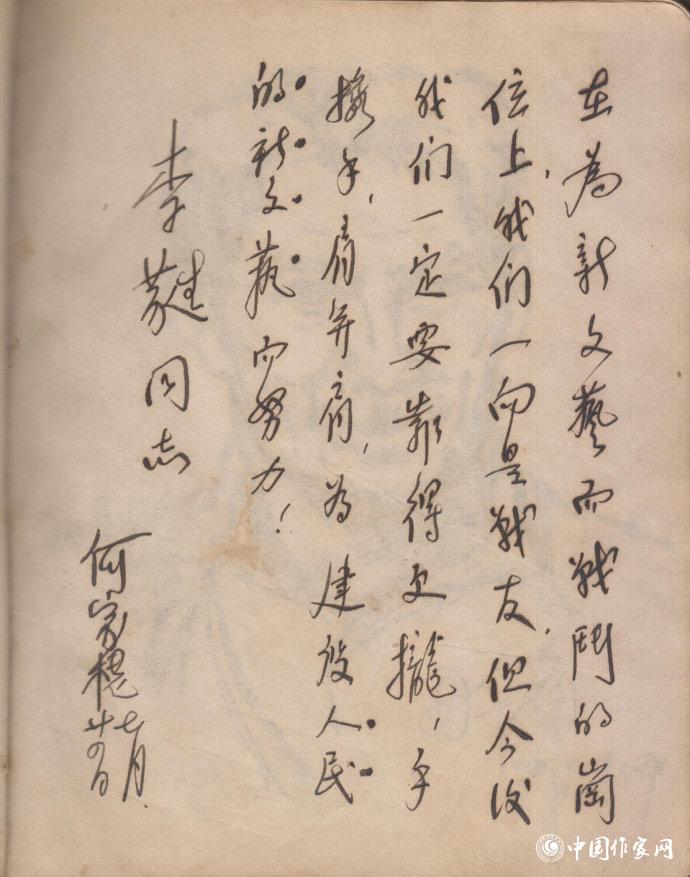 在為新文藝而戰鬥的崗
位上，我们一向是戰友，但今後
我们一定要靠得更攏，手
攙手，肩并肩，为建设人民
的新文藝而努力！
李蕤同志
何家槐
七月
廿四日
中国作家网